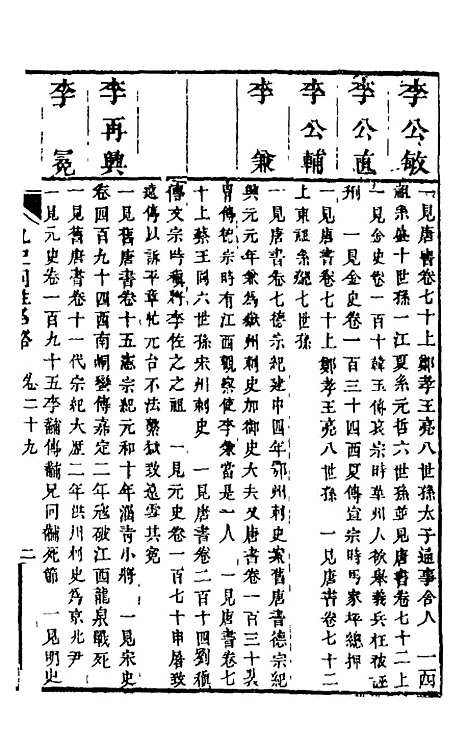 李公敏
一見唐書卷七十上鄭孝王亮八世孫太子通事舍人 一四
祖系盛十世孫一江夏系元哲六世孫並見唐書卷七十二上
李公直
一見金史卷一百十韓玉傳哀宗時華州人欲舉義兵枉被誣
刑 一見金史卷一百三十四西夏傳宣宗時馬家坪總押
李公輔
一見唐書卷七十上鄭孝王亮八世孫 一見唐書卷七十二
上東祖系總七世孫
李兼
一見唐書卷七德宗紀建中四年鄂州刺史案舊唐書德宗紀
興元元年兼爲鄂州刺史加御史大夫又唐書卷一百三十裴
冑傳德宗時有江西觀察使李兼當是一人 一見唐書卷七
十上蔡王岡六世孫宋州刺史 一見唐書卷二百十四劉稹
傳文宗時稹將李佐之之祖 一見元史卷一百七十申屠致
遠傳以訴平章忙元台不法繫獄致遠雪其冤
李再興
一見舊唐書卷十五憲宗紀元和十年淄青小將 一見宋史
卷四百九十四西南峒蠻傳嘉定二年寇破江西龍泉戰死
李冕
一見舊唐書卷十一代宗紀大歷二年洪州刺史爲京兆尹
一見元史卷一百九十五李黼傳黼兄同黼死節 一見明史
九史同姓名畧 卷二十九 二